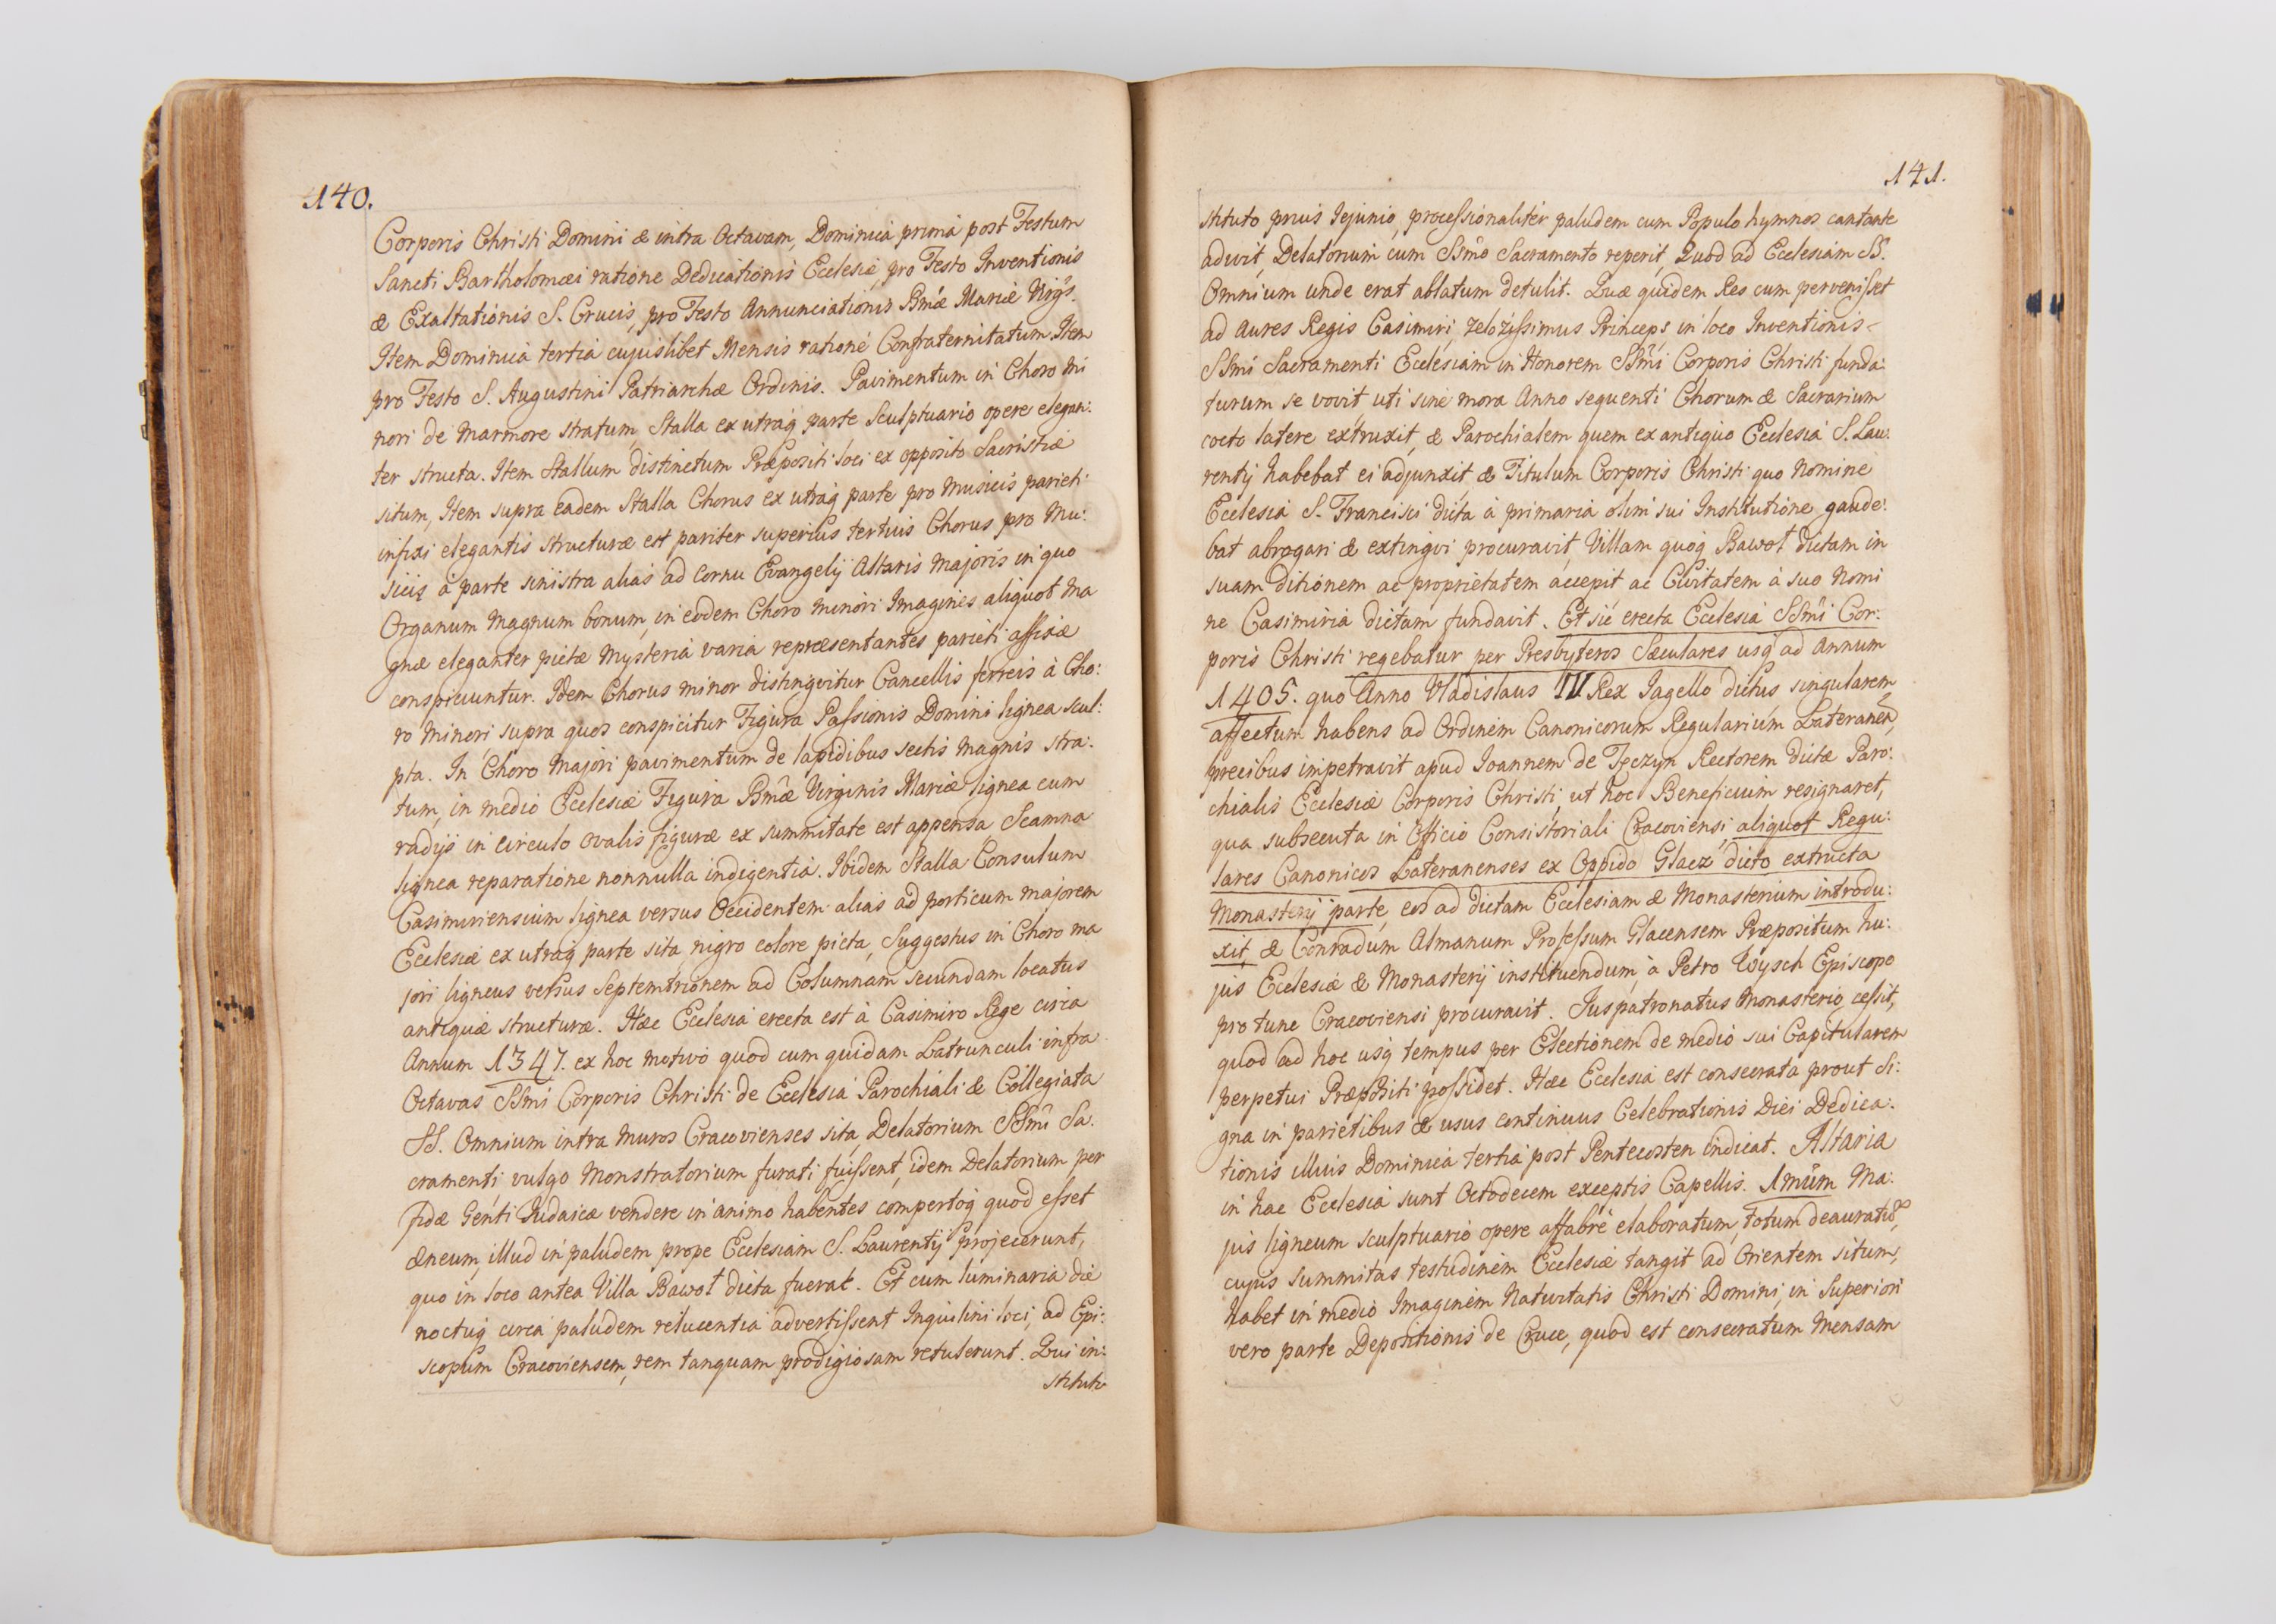 140.
Corporis Christi Domini & intra Octavam, Dominica prima post Festum
Sancti Bartholomæi ratione Dedicationis Ecclesiæ, pro Festo Inventionis
& Exaltationis S. Crucis, pro Festo Annunciationis Bmæ Mariæ Virgs.
Item Dominica tertia cujuslibet Mensis ratione Confraternitatum. Item
pro Festo S. Augustini Patriarchæ Ordinis. Pavimentum in Choro mi
nori de Marmore stratum, Stalla ex utraq parte Sculptuario opere elegan:
ter structa. Item Stallum distinctum Præpositi loci ex opposito Sacristiæ
situm, Item supra eadem Stalla Chorus ex utraq parte pro Musicis parieti
infixi elegantis structuræ est pariter superius tertius Chorus pro Mu:
sicis à parte sinistra alias ad Cornu Evangelij Altaris Majoris in quo
Organum Magnum bonum, in eodem Choro minori Imagines aliquot ma
gnæ eleganter pictæ Mysteria varia repræsentantes parieti affixæ
conspiciuntur. Idem Chorus minor distingvitur Cancellis ferreis à Cho:
ro Minori supra quos conspicitur Figura Passionis Domini lignea scul:
pta. In Choro Majori pavimentum de lapidibus sectis magnis stra:
tum, in medio Ecclesiæ Figura Bmæ Virginis Mariæ lignea cum
radijs in circulo ovalis figuræ ex summitate est appensa Scamna
lignea reparatione nonnulla indigentia. Ibidem Stalla Consulum
Casimiriensium lignea versus Occidentem alias ad porticum majorem
Ecclesiæ ex utraq parte sita, nigro colore picta, Suggestus in Choro ma
jori ligneus versus Septemtrionem ad Columnam secundam locatus
antiquæ structuræ. Hæc Ecclesia erecta est à Casimiro Rege circa
Annum 1347. ex hoc motivo quod cum quidam Latrunculi infra
Octavas SSmi Corporis Christi de Ecclesia Parochiali & Collegiata
SS. Omnium intra Muros Cracovienses sita, Delatorium SSmi Sa:
cramenti vulgo Monstratorium furati fuissent, idem Delatorium per
fidæ Genti Judaicæ vendere in animo habentes compertoq quod esset
æneum, illud in paludem prope Ecclesiam S. Laurentij projecerunt,
quo in loco antea Villa Bawoł dicta fuerat. Et cum luminaria die
noctuq circa paludem relucentia advertissent Inquilini loci, ad Epi:
scopum Cracoviensem, rem tanquam prodigiosam retulerunt. Qui in:
stituto
141.
stituto prius Jejunio, processionaliter paludem cum Populo hymnos cantante
adivit, Delatorium cum SSmo Sacramento reperit, Quod ad Ecclesiam SS.
Omnium unde erat ablatum detulit. Quæ quidem Res cum pervenisset
ad aures Regis Casimiri, zelozissimus Princeps in loco Inventionis
SSmi Sacramenti Ecclesiam in Honorem SSmi Corporis Christi funda:
turum se vovit, uti sine mora Anno sequenti Chorum & Sacrarium
cocto latere extruxit, & Parochialem quem ex antiquo Ecclesia S. Lau:
rentij habebat ei adjunxit & Titulum Corporis Christi quo Nomine
Ecclesia S. Francisci dicta à primaria olim sui Institutione gaude:
bat abrogari & extingvi procuravit, Villam quoq Bawoł dictam in
suam ditionem ac proprietatem accepit ac Civitatem à suo Nomi
ne Casimiria dictam fundavit. Et sic erecta Ecclesia SSmi Cor:
poris Christi regebatur per Presbyteros Sæculares usq ad Annum
1405. quo Anno Vladislaus IV Rex Jagello dictus, singularem
affectum habens ad Ordinem Canonicorum Regularium Lateranen,
precibus impetravit apud Joannem de Tęczyn Rectorem dictæ Paro:
chialis Ecclesiæ Corporis Christi, ut hoc Beneficium resignaret,
qua subsecuta in Officio Consistoriali Cracoviensi, aliquot Regu:
lares Canonicos Lateranenses ex Oppido Glacz dicto extructa
Monasterij parte, eos ad dictam Ecclesiam & Monasterium introdu:
xit, & Conradum Almanum Professum Glacensem Præpositum hu:
jus Ecclesiæ & Monasterij instituendum, à Petro Wysch Episcopo
pro tunc Cracoviensi procuravit. Juspatronatus Monasterio cessit,
quod ad hoc usq tempus per Electionem de medio sui Capitularem
perpetui Præpositi possidet. Hæc Ecclesia est consecrata prout Si:
gna in parietibus & usus continuus Celebrationis Diei Dedica:
tionis illius Dominica tertia post Pentecosten indicat. Altaria
in hac Ecclesia sunt Octodecem exceptis Capellis. 1mum Ma:
jus ligneum sculptuario opere affabrè elaboratum, totum deauratum,
cujus summitas testudinem Ecclesiæ tangit ad Orientem situm,
habet in medio Imaginem Nativitatis Christi Domini, in Superiori
vero parte Depositionis de Cruce, quod est consecratum Mensam